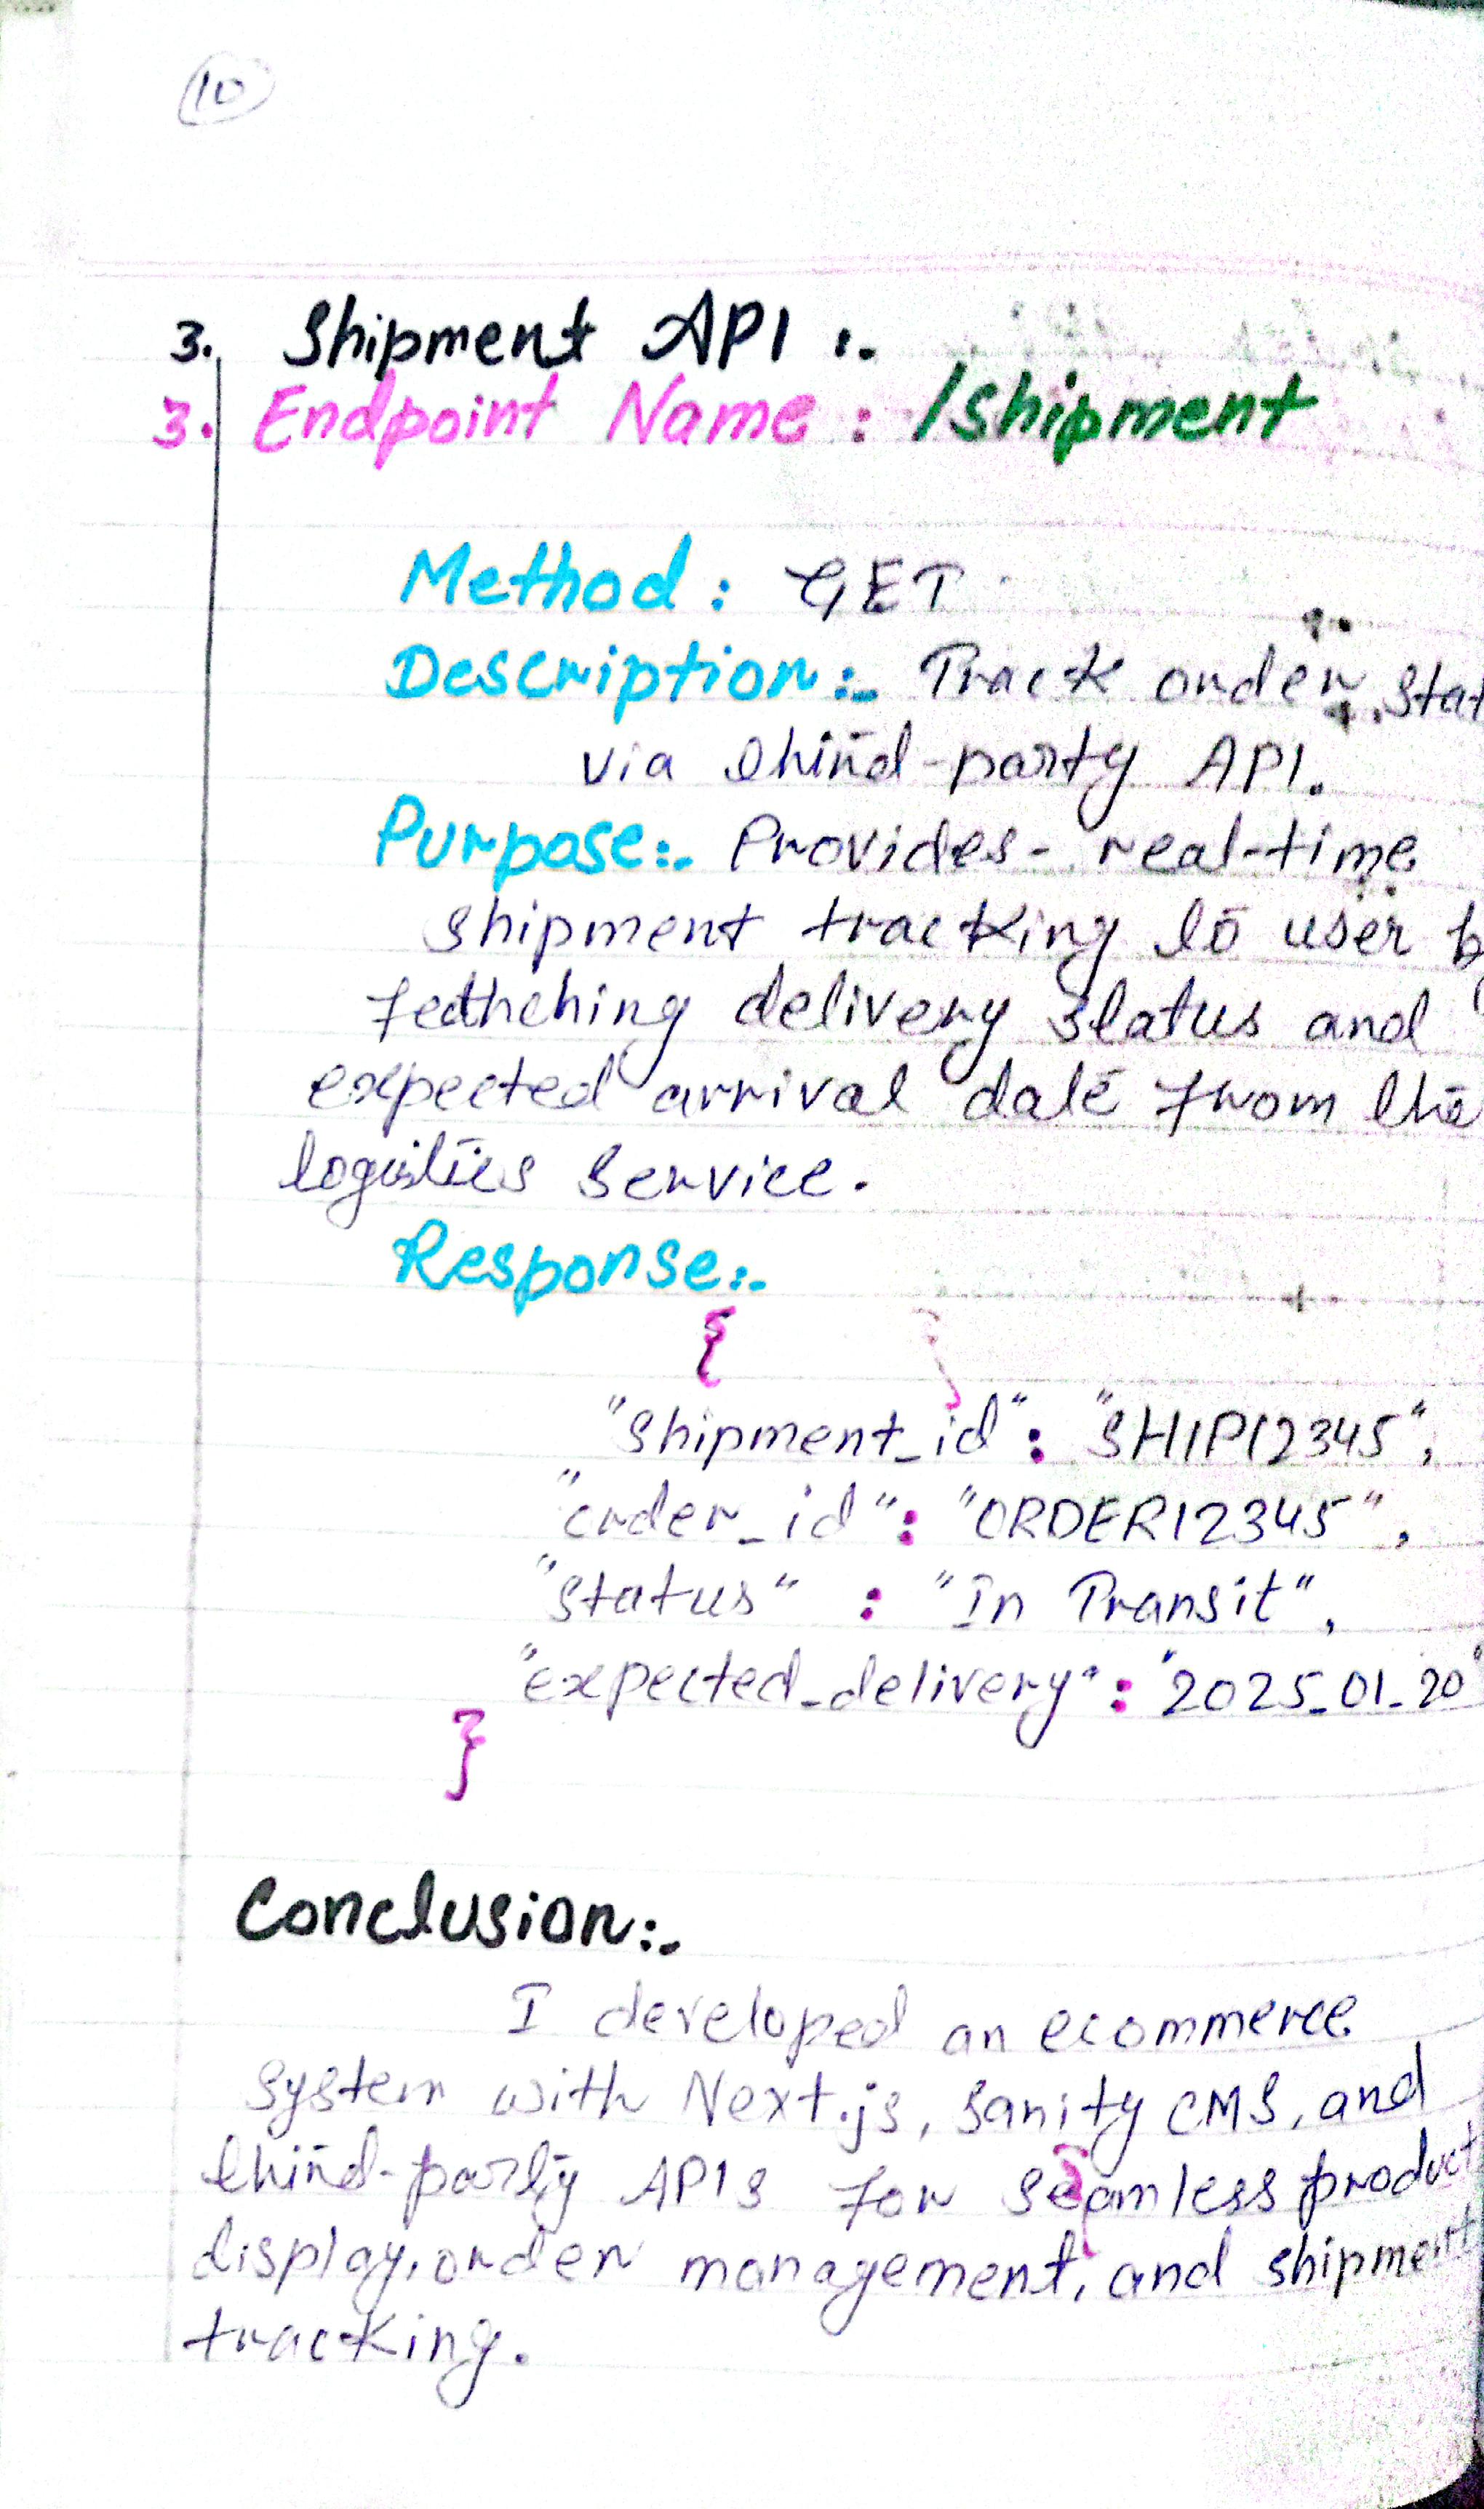 10
3. Shipment API :-
3. Endpoint Name : /shipment
Method : GET
Description:- Track order stat
via third-party API.
Purpose:- Provides - real-time
shipment tracking to user b
fedthching delivery status and
expected arrival date from the
logistics service.
Response:-
{
"shipment_id" : "SHIP12345",
"order_id" : "ORDER12345",
"status" : "In Transit",
"expected_delivery" : "2025-01-20"
}
Conclusion:-
I developed an ecommerce
system with Next.js, sanity CMS, and
third-party APIs for seamless product
display, order management, and shipment
tracking.